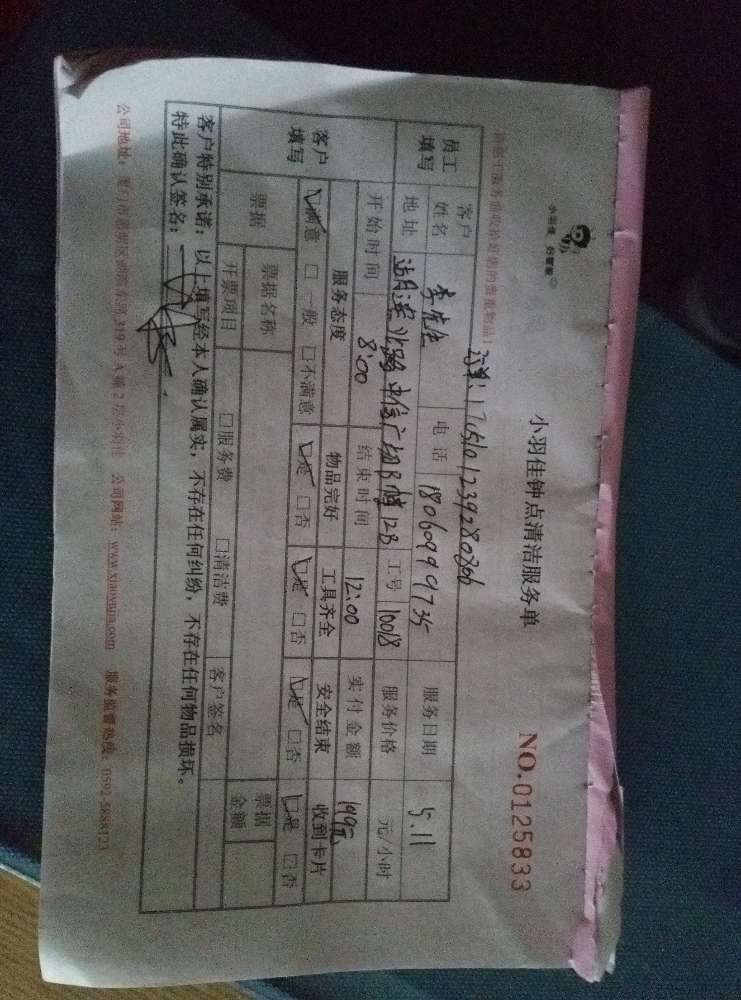 小羽佳 好管家
小羽佳钟点清洁服务单
NO.0125833
订单:170510123928080b
员工填写
客户姓名 李先生 电话 18060999735 服务日期 5.11
地址 中信广场B幢12B 工号 10018 服务价格 元/小时
客户填写
开始时间 8:00 结束时间 12:00 实付金额 199元
服务态度 物品完好 工具齐全 安全结束 收到卡片
☑满意 □一般 □不满意 ☑是 □否 ☑是 □否 ☑是 □否 ☑是 □否
票据 票据名称 票据金额
开票项目 □服务费 □清洁费 客户签名
客户特别承诺:以上填写经本人确认属实,不存在任何纠纷,不存在任何物品损坏。
特此确认签名:
公司地址: 319号A幢2层小羽佳 公司网站:www.xiaoyujia.com 服务监督热线:0592-5888123